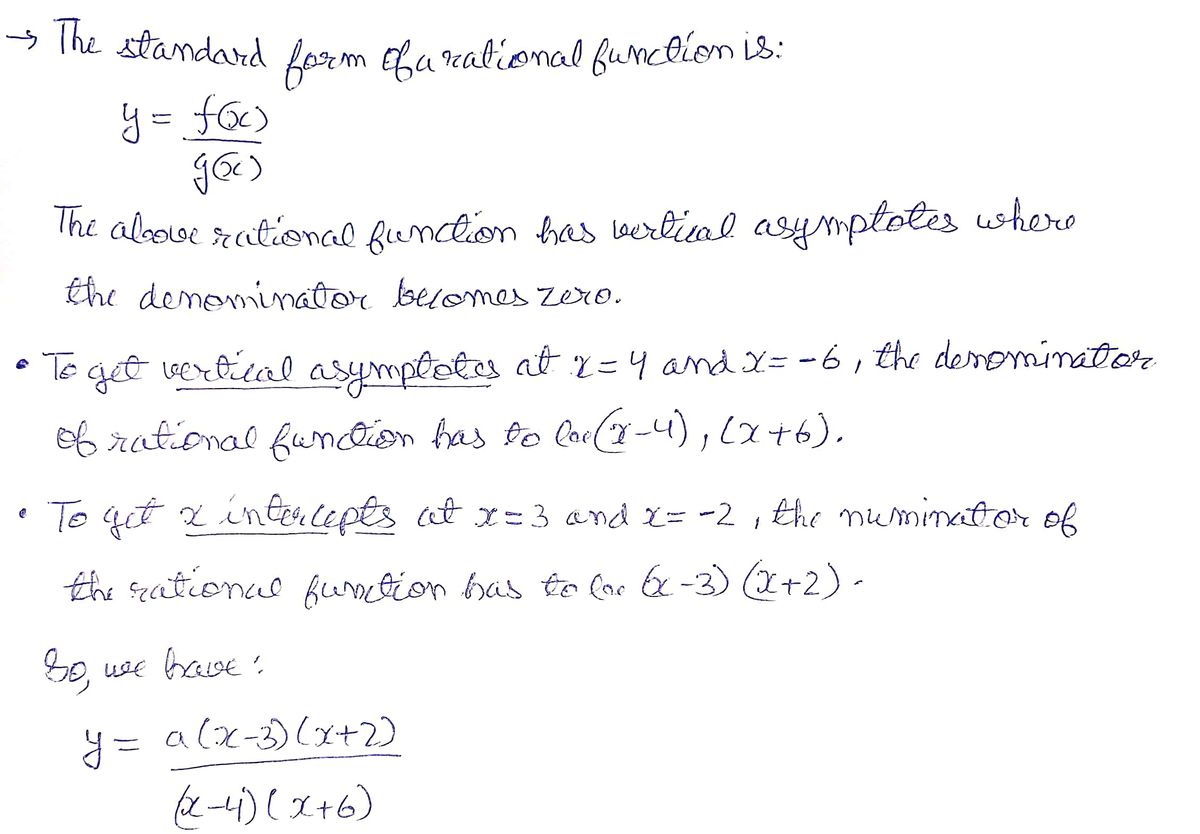 → The standard form of a rational function is:
y = f(x)
g(x)
The above rational function has vertical asymptotes where
the denominator becomes zero.
• To get vertical asymptotes at x = 4 and x = -6, the denominator
of rational function has to be (x-4), (x+6).
• To get x intercepts at x = 3 and x = -2, the numinator of
the rational function has to be (x-3) (x+2).
So, we have:
y = a(x-3)(x+2)
(x-4)(x+6)